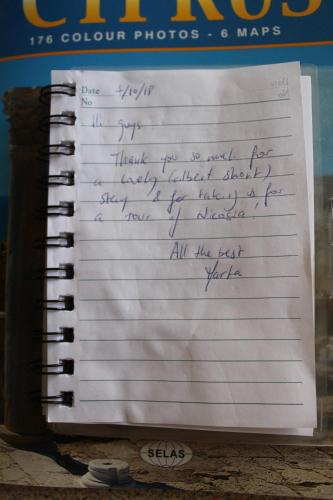 CYPRUS
176 COLOUR PHOTOS - 6 MAPS
Date 4/10/18
No
Hi guys
Thank you so much for
a lovely (albeit short)
stay & for taking us for
a tour of Nicosia!
All the best
Marta
SELAS